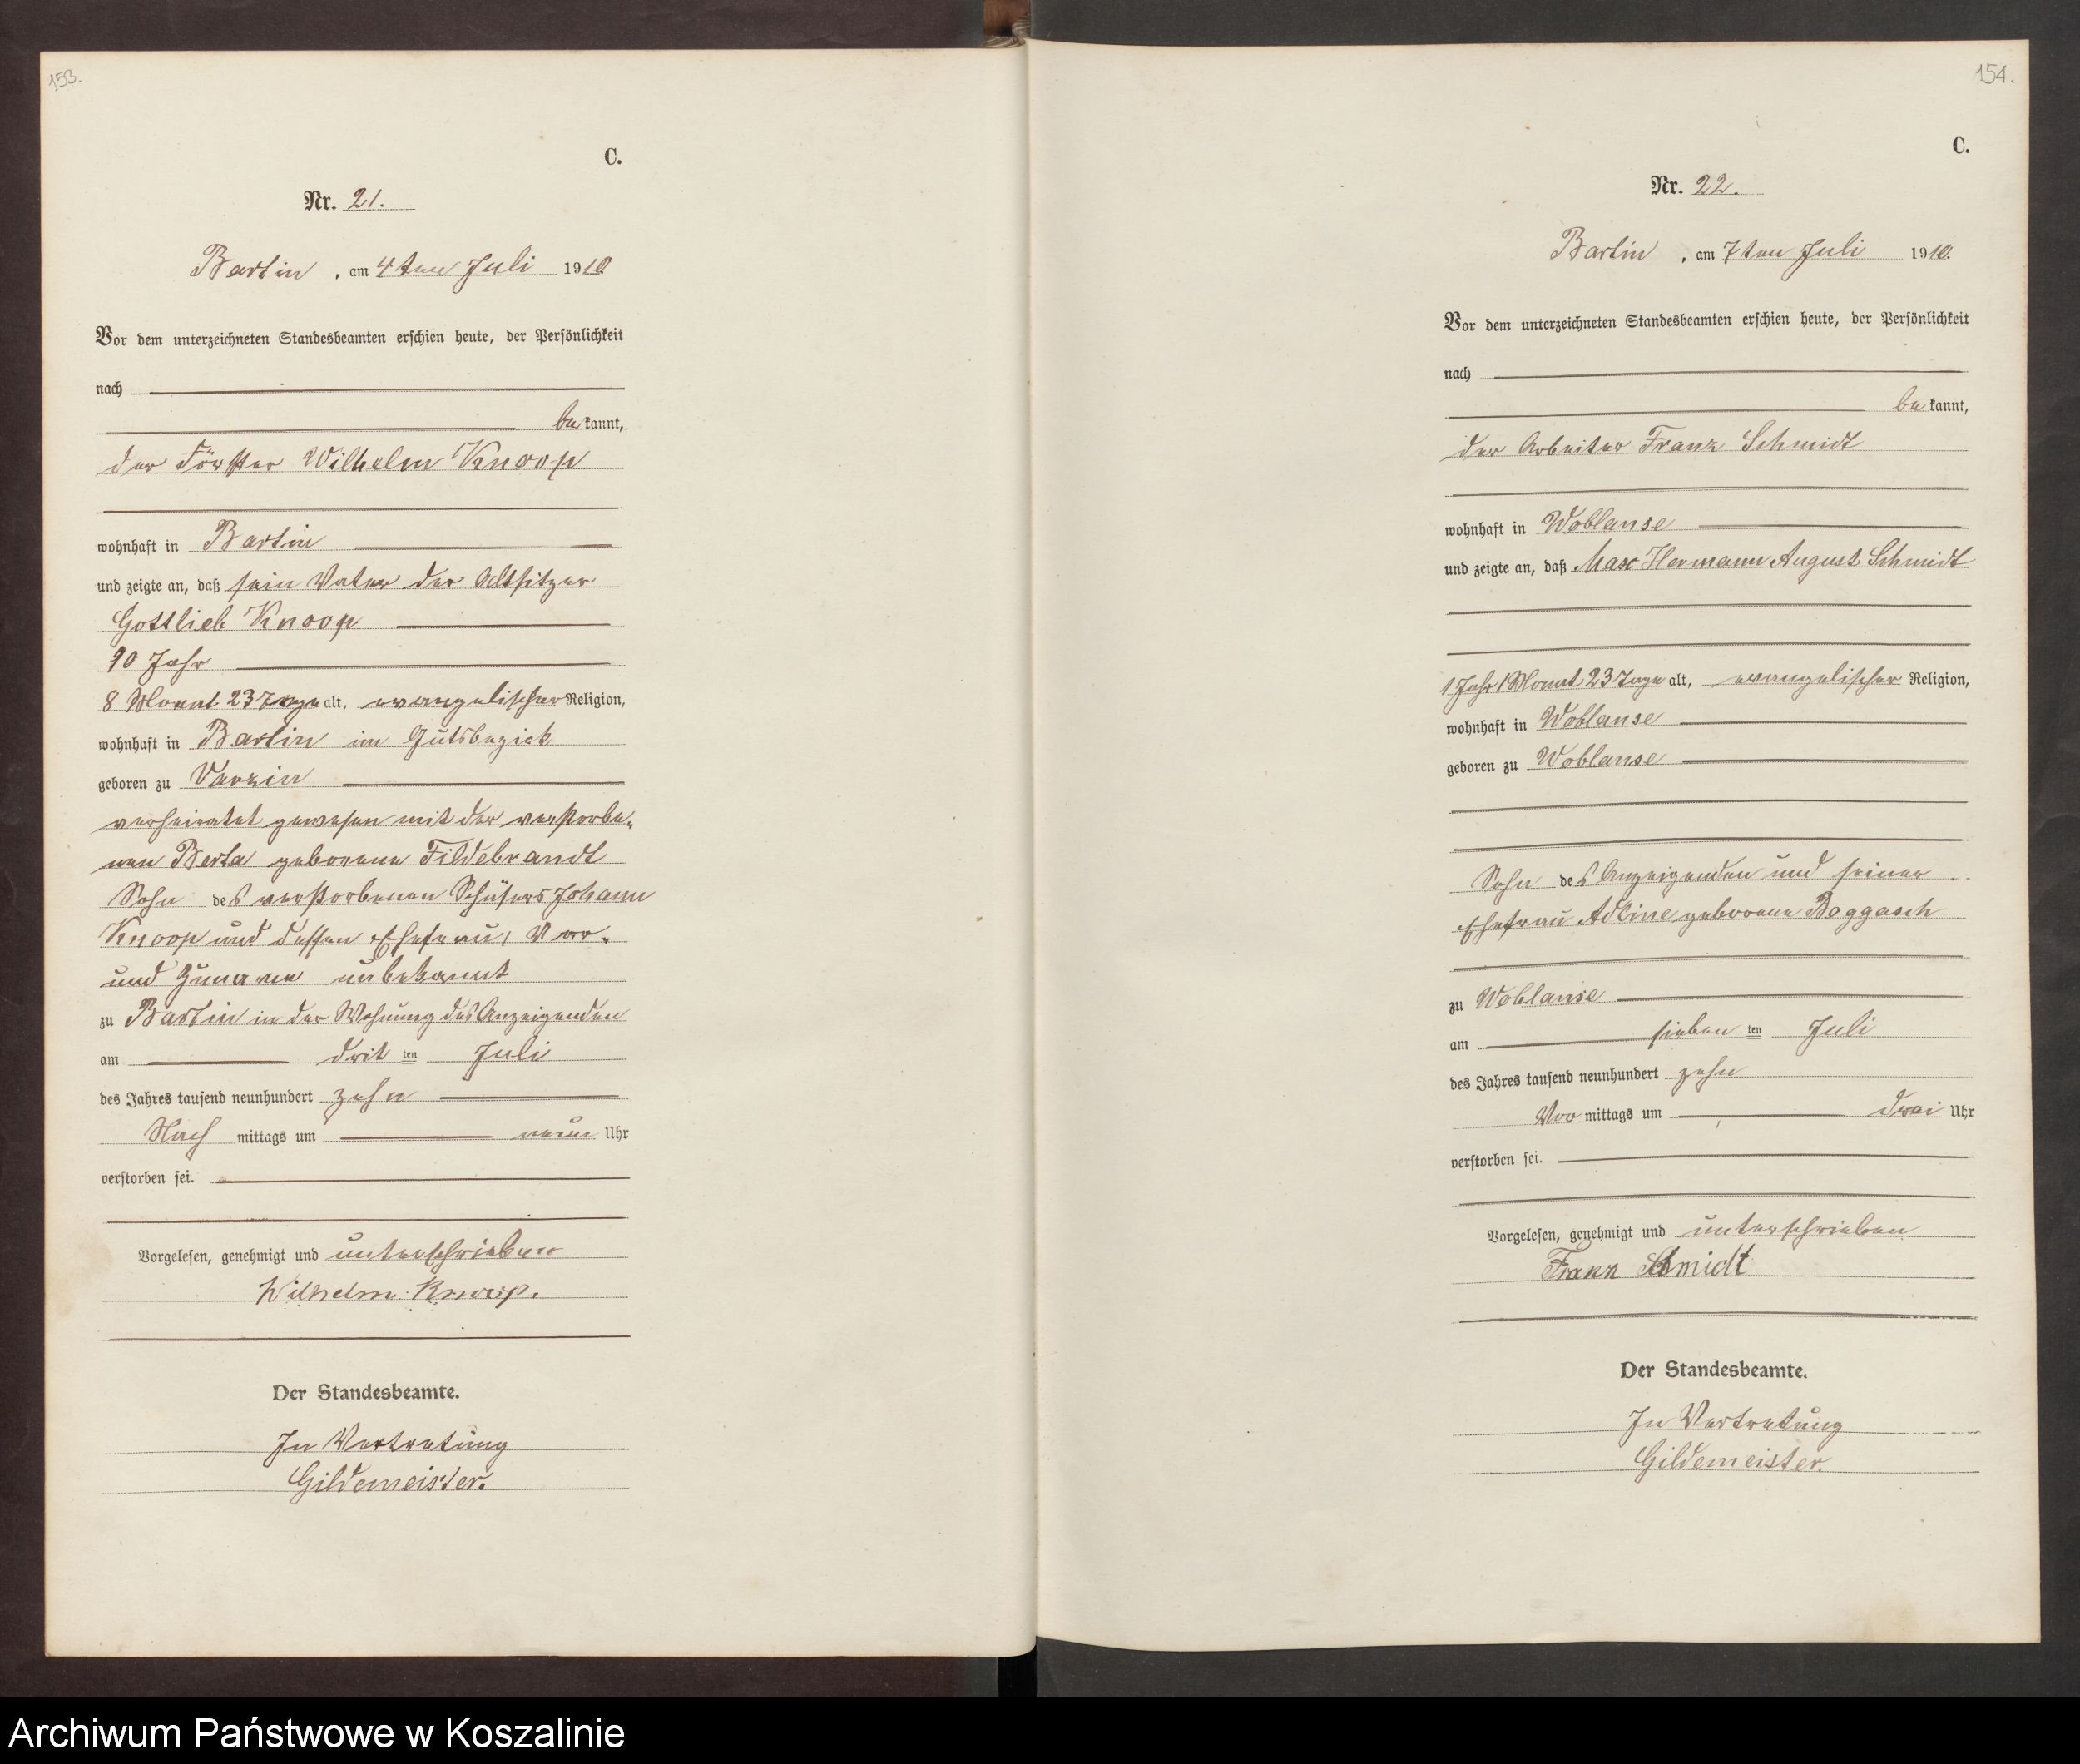 153.
C.
Nr. 21.
Bartin, am 4ten Juli 1910
Vor dem unterzeichneten Standesbeamten erschien heute, der Persönlichkeit
nach
bekannt,
der Förster Wilhelm Knoop
wohnhaft in Bartin
und zeigte an, daß sein Vater der Altsitzer
Gottlieb Knoop
90 Jahr
8 Monat 23 Tage alt, evangelischer Religion,
wohnhaft in Bartin im Gutsbezirk
geboren zu Varzin
verheiratet gewesen mit der verstorbe-
nen Berta geborene Fildebrandt
Sohn des verstorbenen Schäfers Johann
Knoop und dessen Ehefrau, Vor-
und Zuname unbekannt
zu Bartin in der Wohnung des Anzeigenden
am drit ten Juli
des Jahres tausend neunhundert zehn
Nach mittags um neun Uhr
verstorben sei.
Vorgelesen, genehmigt und unterschrieben
Wilhelm Knoop.
Der Standesbeamte.
In Vertretung
Gildemeister.
154.
C.
Nr. 22.
Bartin, am 7ten Juli 1910.
Vor dem unterzeichneten Standesbeamten erschien heute, der Persönlichkeit
nach
bekannt,
der Arbeiter Franz Schmidt
wohnhaft in Woblanse
und zeigte an, daß Max Hermann August Schmidt
1 Jahr 1 Monat 23 Tage alt, evangelischer Religion,
wohnhaft in Woblanse
geboren zu Woblanse
Sohn des Anzeigenden und seiner
Ehefrau Adline geborene Boggasch
zu Woblanse
am sieben ten Juli
des Jahres tausend neunhundert zehn
Vor mittags um drei Uhr
verstorben sei.
Vorgelesen, genehmigt und unterschrieben
Franz Schmidt
Der Standesbeamte.
In Vertretung
Gildemeister.
Archiwum Państwowe w Koszalinie